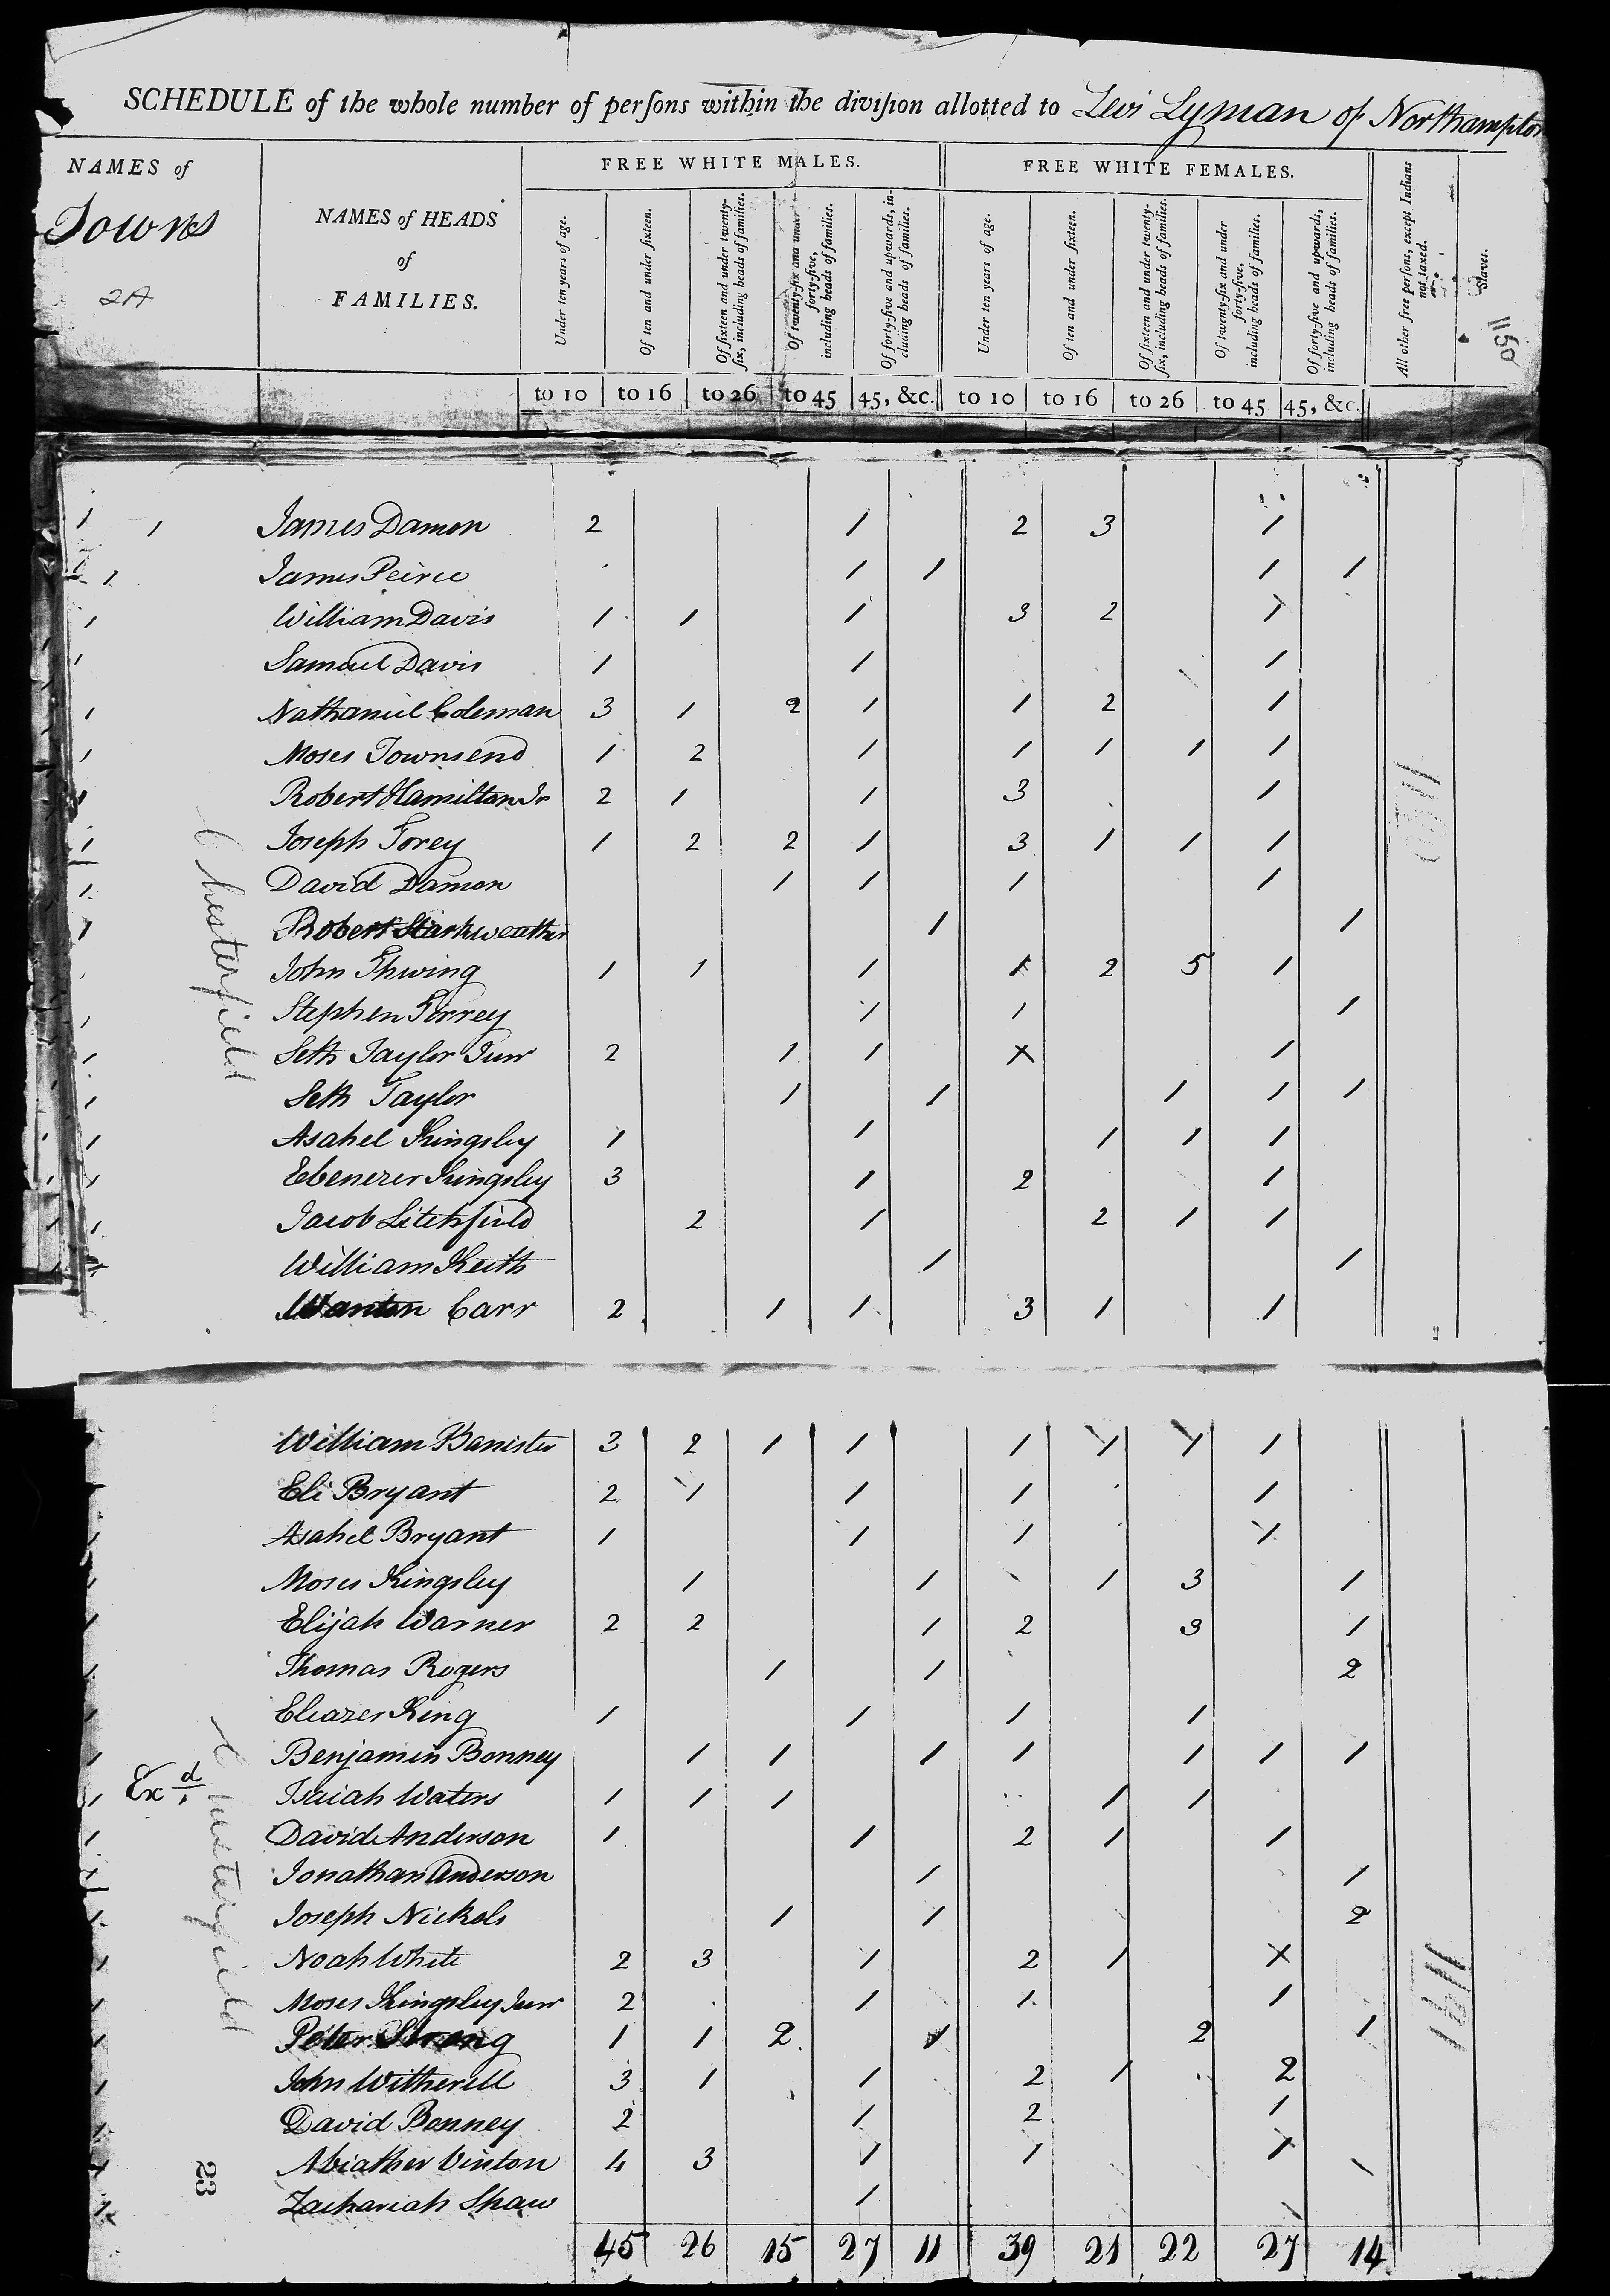 SCHEDULE of the whole number of perſons within the diviſion allotted to Levi Lyman of Northampton
NAMES of
Towns
2A
NAMES of HEADS
of
FAMILIES.
FREE WHITE MALES.
FREE WHITE FEMALES.
Under ten years of age.
Of ten and under ſixteen.
Of ſixteen and under twenty-ſix, including heads of families.
Of twenty-ſix and under forty-five, including heads of families.
Of forty-five and upwards, including heads of families.
Under ten years of age.
Of ten and under ſixteen.
Of ſixteen and under twenty-ſix, including heads of families.
Of twenty-ſix and under forty-five, including heads of families.
Of forty-five and upwards, including heads of families.
All other free perſons, except Indians not taxed.
Slaves.
1150
to 10 to 16 to 26 to 45 45, &c. to 10 to 16 to 26 to 45 45, &c.
1 1 James Damon 2 1 2 3 1
1 James Peirce 1 1 1 1
1 William Davis 1 1 1 3 2 1
1 Samuel Davis 1 1 1
1 Nathaniel Coleman 3 1 2 1 1 2 1
1 Moses Townsend 1 2 1 1 1 1 1
1 Robert Hamilton Jr 2 1 1 3 1
1 Joseph Torey 1 2 2 1 3 1 1 1
1 David Damon 1 1 1 1
1 Robert Starkweather 1 1
1 John Thwing 1 1 1 1 2 5 1
1 Stephen Torrey 1 1 1
1 Seth Taylor Junr 2 1 1 x 1
1 Seth Taylor 1 1 1 1 1
1 Asahel Kingsley 1 1 1 1 1
1 Ebenezer Kingsley 3 1 2 1
1 Jacob Litchfield 2 1 2 1 1
William Keith 1 1
Wanton Carr 2 1 1 3 1 1
Chesterfield
William Banister 3 2 1 1 1 1 1 1
Eli Bryant 2 1 1 1 1
1 Asahel Bryant 1 1 1 1
1 Moses Kingsley 1 1 1 3 1
1 Elijah Warner 2 2 1 2 3 1
1 Thomas Rogers 1 1 2
1 Eleazer King 1 1 1 1
1 Benjamin Bonney 1 1 1 1 1 1 1
1 Exd. Isaiah Waters 1 1 1 1 1
1 David Anderson 1 1 2 1 1
1 Jonathan Anderson 1 1
1 Joseph Nickols 1 1 2
1 Noah White 2 3 1 2 1 x
1 Moses Kingsley Junr 2 1 1 1
1 Peter Strong 1 1 2 1 2 1
1 John Witherell 3 1 1 2 1 2
1 David Bonney 2 1 2 1
1 Abiather Vinton 4 3 1 1 1
1 Zachariah Shaw 1
Chesterfield
23
45 26 15 27 11 39 21 22 27 14